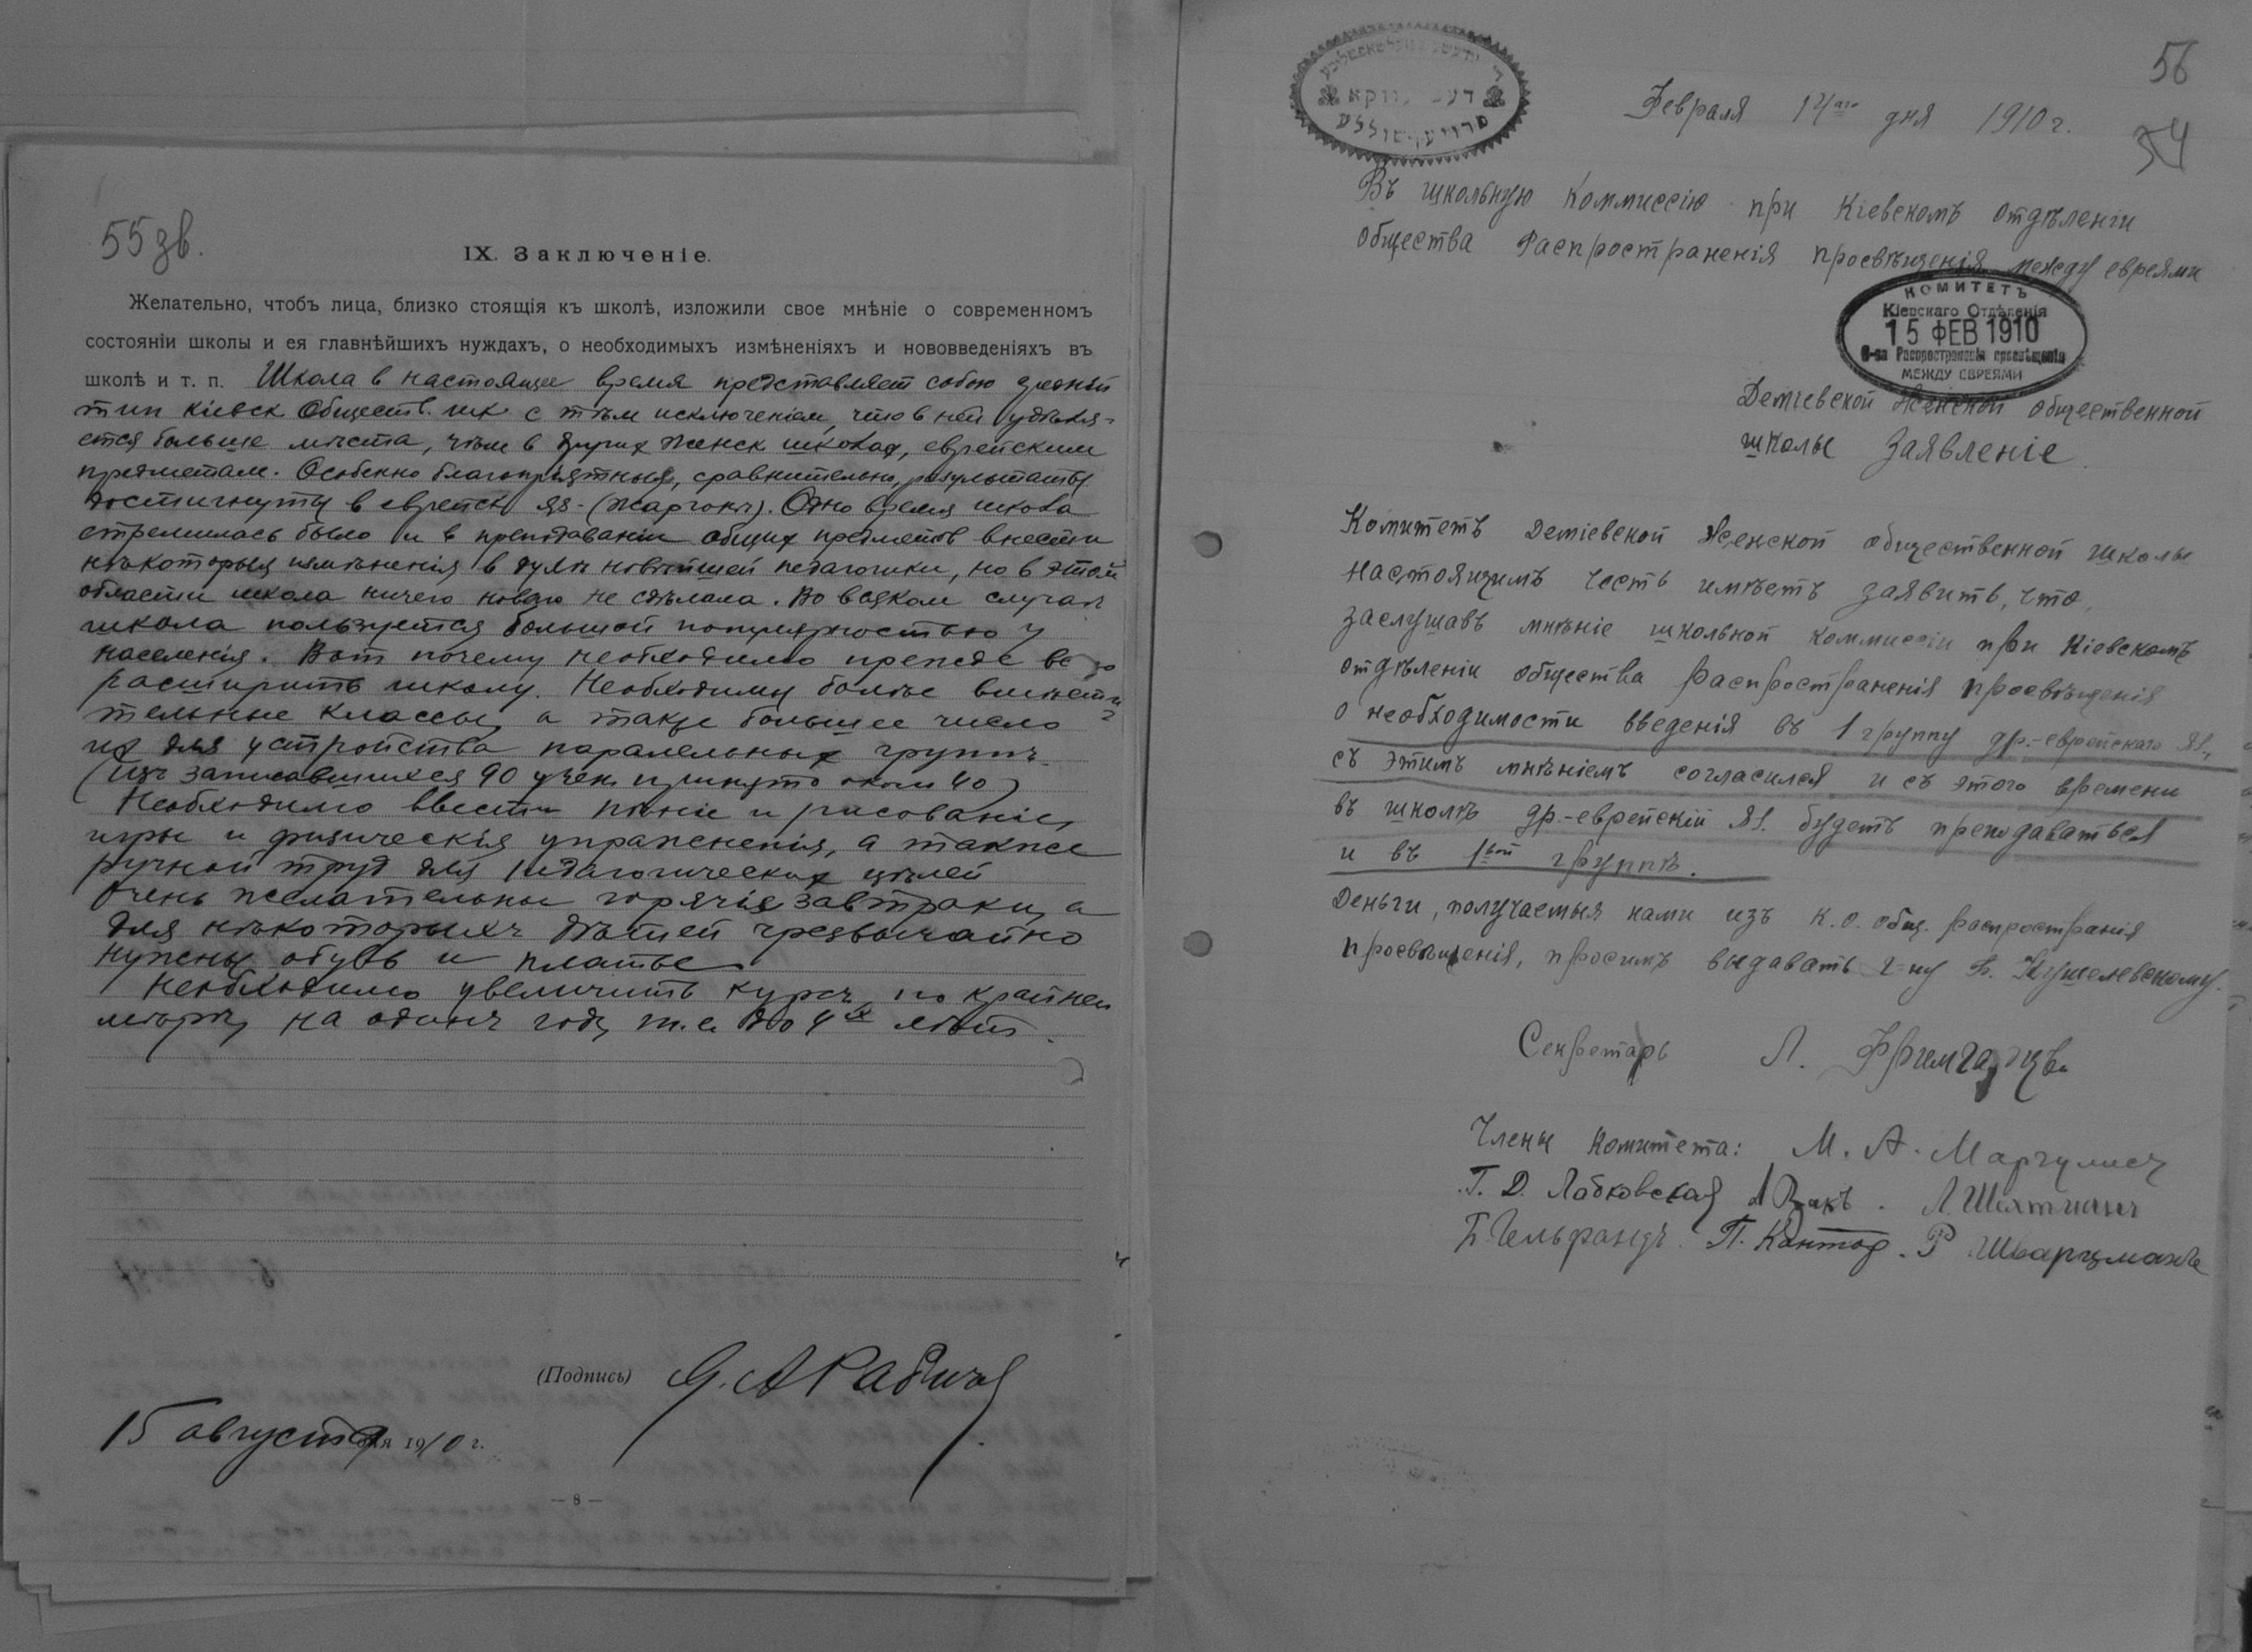 55 зв.
IX. Заключеніе.
Желательно, чтобъ лица, близко стоящія къ школѣ, изложили свое мнѣніе о современномъ
состояніи школы и ея главнѣйшихъ нуждахъ, о необходимыхъ измѣненіяхъ и нововведеніяхъ въ
школѣ и т. п. Школа в настоящее время представляет собою
тип кіевск Обществ. шк с тѣм исключеніем, что в ней удѣля-
ется больше мѣста, чѣм в других женск школах, еврейским
предметам. Особенно благопріятные, сравнительно, результаты
достигнуты в еврейск яз- (жаргонъ). Одно время школа
стремилась было и в преподаваніи общих предметов внести
нѣкоторыя измѣненія в духѣ новѣйшей педагогики, но в этой
области школа ничего новаго не сдѣлала. Во всяком случаѣ
школа пользуется большой популярностью у
населенія. Вот почему необходимо прежде всего
расширить школу. Необходимы болѣе вмѣсти
тельные классы, а также большее число
их для устройства паралельных группъ
(изъ записавшихся 90 учен. принято около 40)
Необходимо ввести пѣніе и рисованіе,
игры и физическія упражненія, а также
ручной труд для педагогических цѣлей
Очень желательны горячіе завтраки, а
для нѣкоторыхъ дѣтей чрезвычайно
нужены обувь и платье
Необходимо увеличить курсъ, по крайней
мѣрѣ, на одинъ годъ, т.е. до 4х лѣт.
(Подпись)
15 августа дня 1910 г.
— 8 —
56
54
Февраля 14го дня 1910 г.
Въ школьную Коммиссію при Кіевскомъ отдѣленіи
общества Распространенія просвѣщенія между евреями
КОМИТЕТЪ
Кіевскаго Отдѣленія
15 ФЕВ 1910
О-ва Распространенія просвѣщенія
МЕЖДУ ЕВРЕЯМИ
Деміевской Женской общественной
школы Заявленіе.
Комитетъ Деміевской Женской общественной школы
настоящимъ честь имѣетъ заявить, что,
заслушавъ мнѣніе школьной коммиссіи при Кіевскомъ
отдѣленіи общества Распространенія просвѣщенія
о необходимости введенія въ 1 группу др.-еврейскаго яз.,
съ этимъ мнѣніемъ согласился и съ этого времени
въ школѣ др.-еврейскій яз. будетъ преподаваться
и въ 1вой группѣ.
Деньги, получаемыя нами изъ К.О. общ. распространія
просвѣщенія, просимъ выдавать г-ну Кушелевскому.
Секретарь Л.
Члены Комитета: М. А. Маргулисъ
Г. Д. Лабковская Л. Шихтманъ
Б. Гельфандъ. П. Кантор. Р Шварцманъ